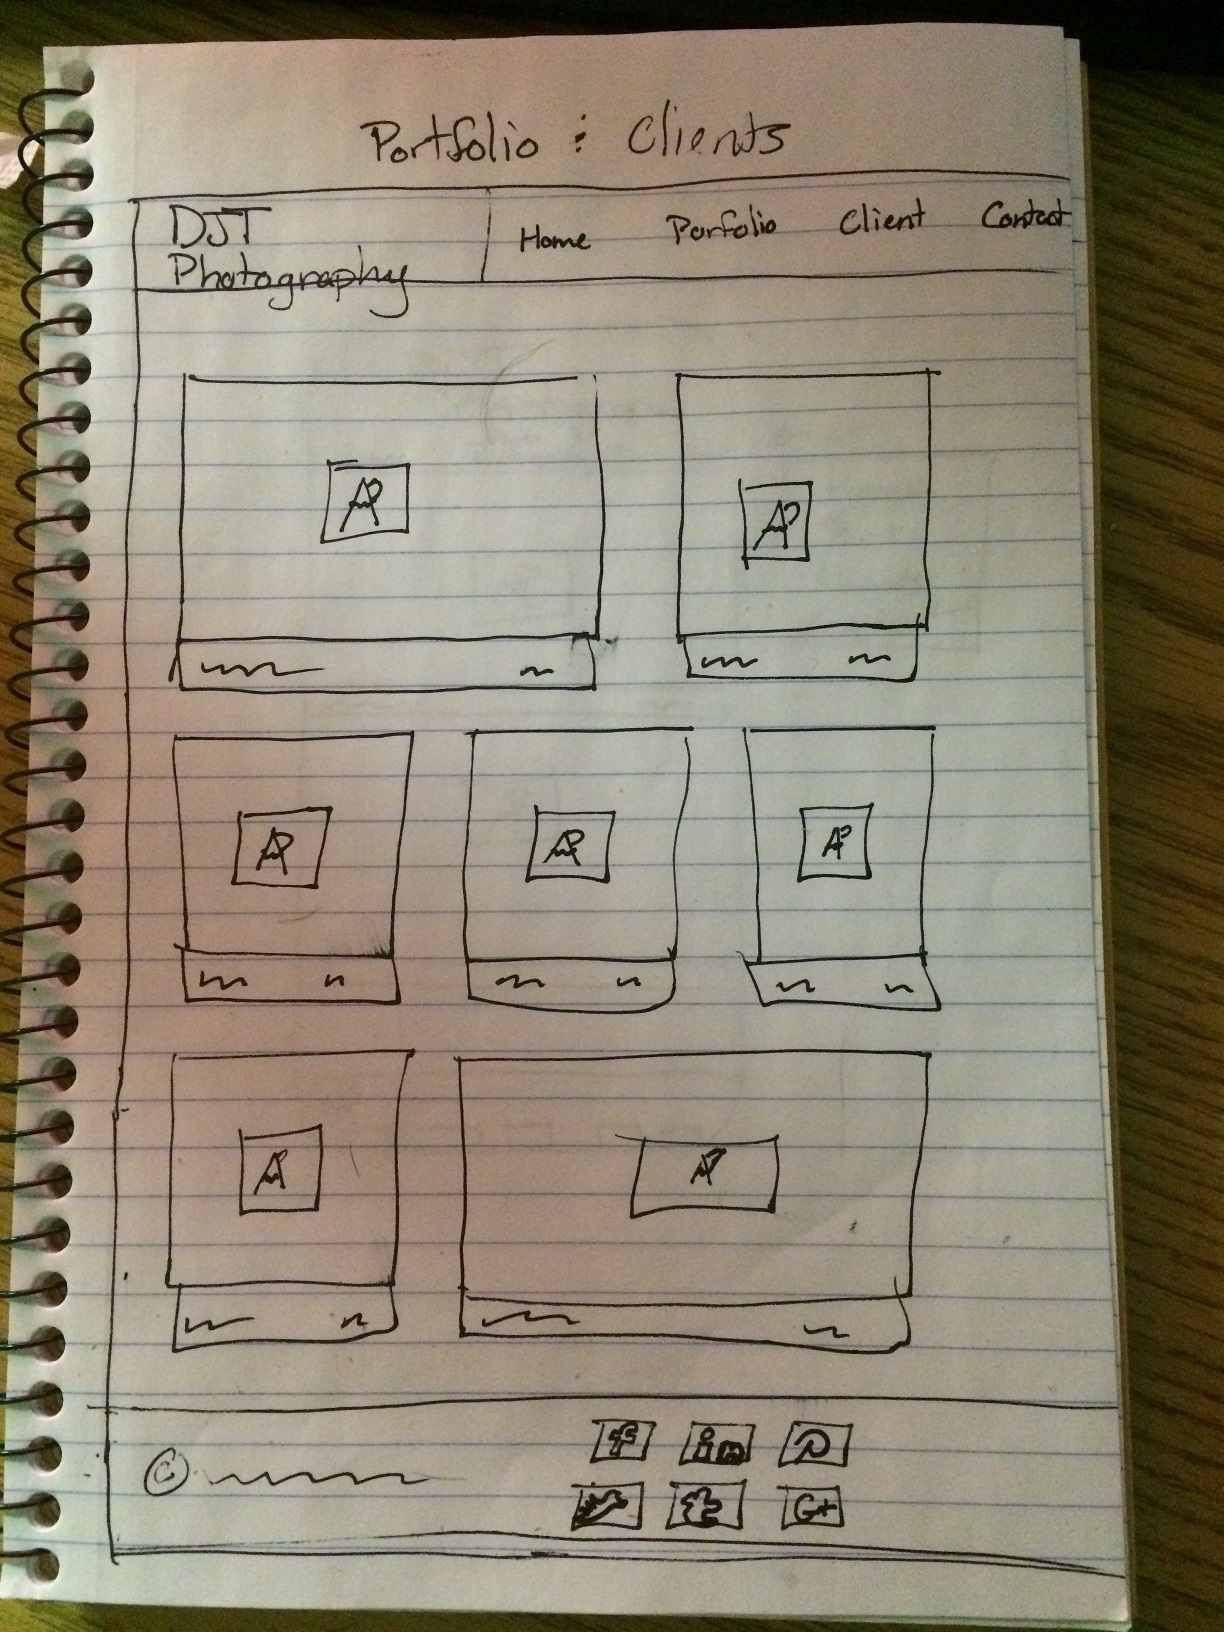 Portfolio : Clients
DJT
Photography
Home Porfolio Client Contact
AP
AP
AP
AP
AP
AP
AP
©
f in P
t G+